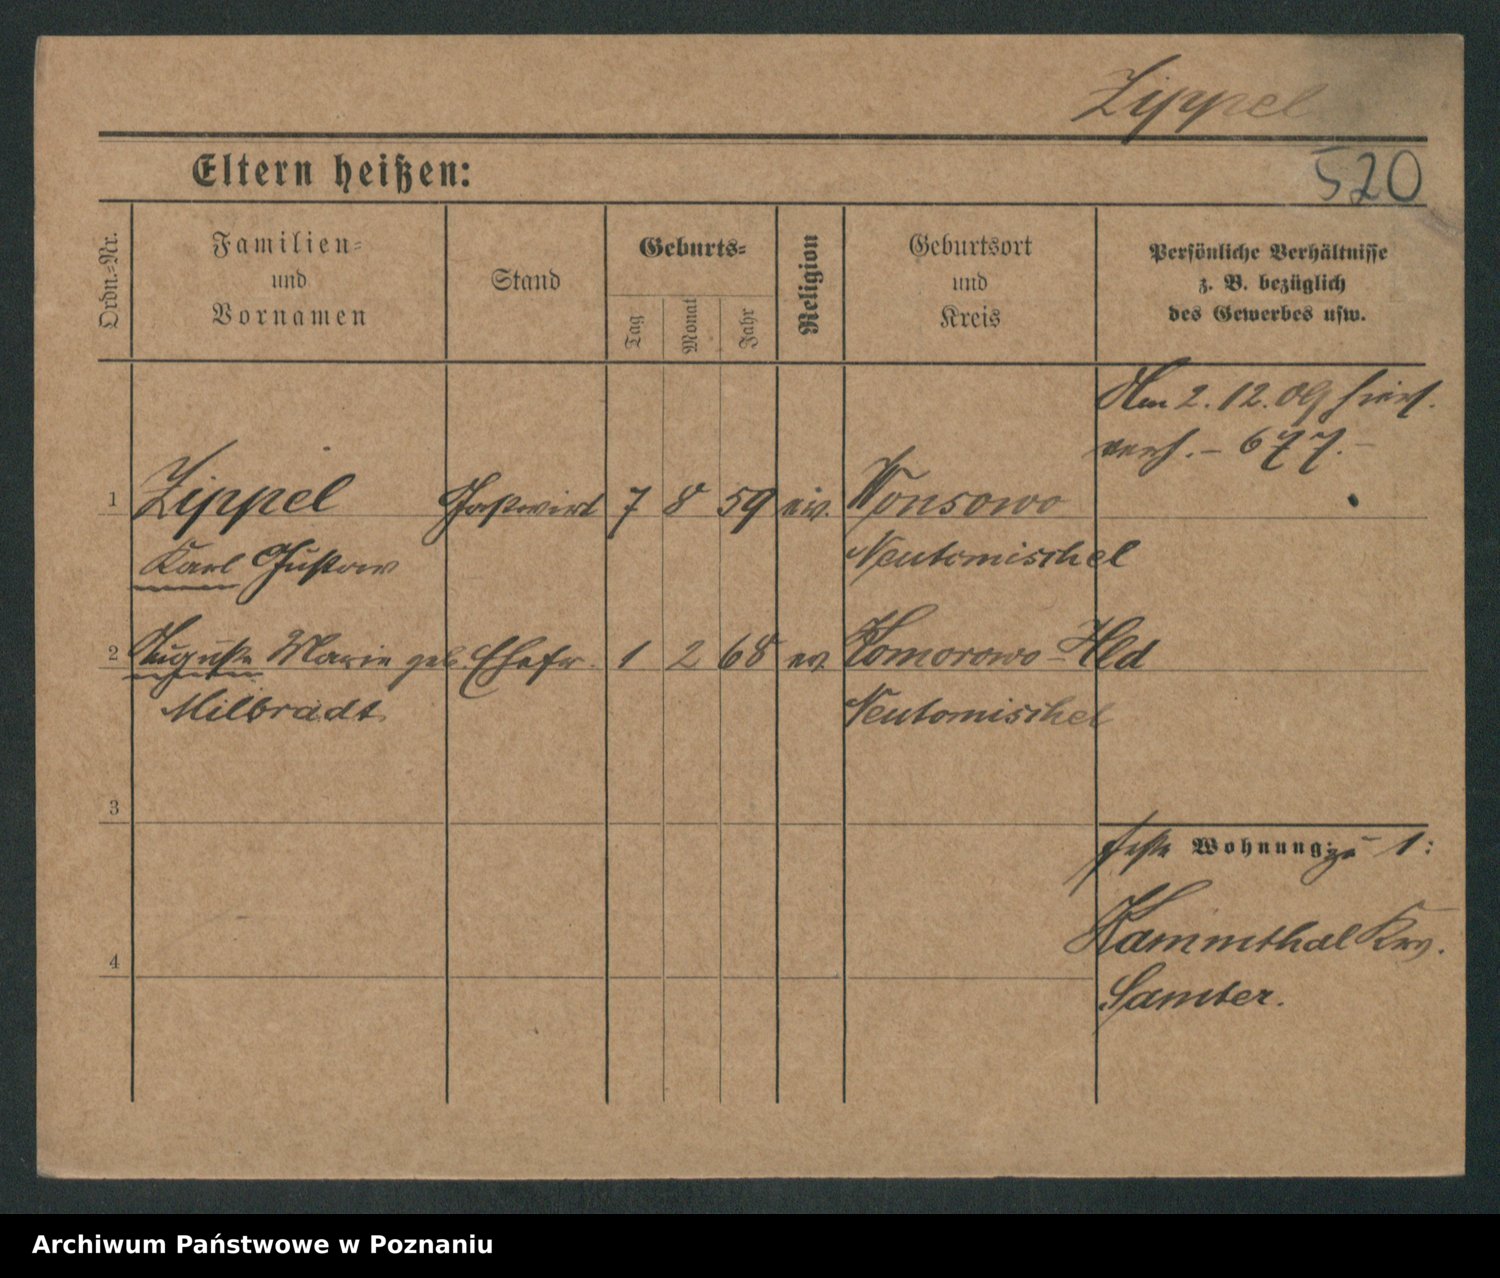 Zippel
520
Eltern heißen:
Ordn.=Nr.
Familien=
und
Vornamen
Stand
Geburts=
Tag
Monat
Jahr
Religion
Geburtsort
und
Kreis
Persönliche Verhältnisse
z. B. bezüglich
des Gewerbes usw.
Am 2. 12. 09 hier
verh. – 677. –
1 Zippel Gastwirt 7 8 59 ev. Wonsowo
Karl Gustav Neutomischel
2 Auguste Marie geb. Ehefr. 1 2 68 ev Komorowo-Hld
Milbradt Neutomischel
3
feste Wohnung: zu 1:
Kammthal Krs.
4
Samter.
Archiwum Państwowe w Poznaniu